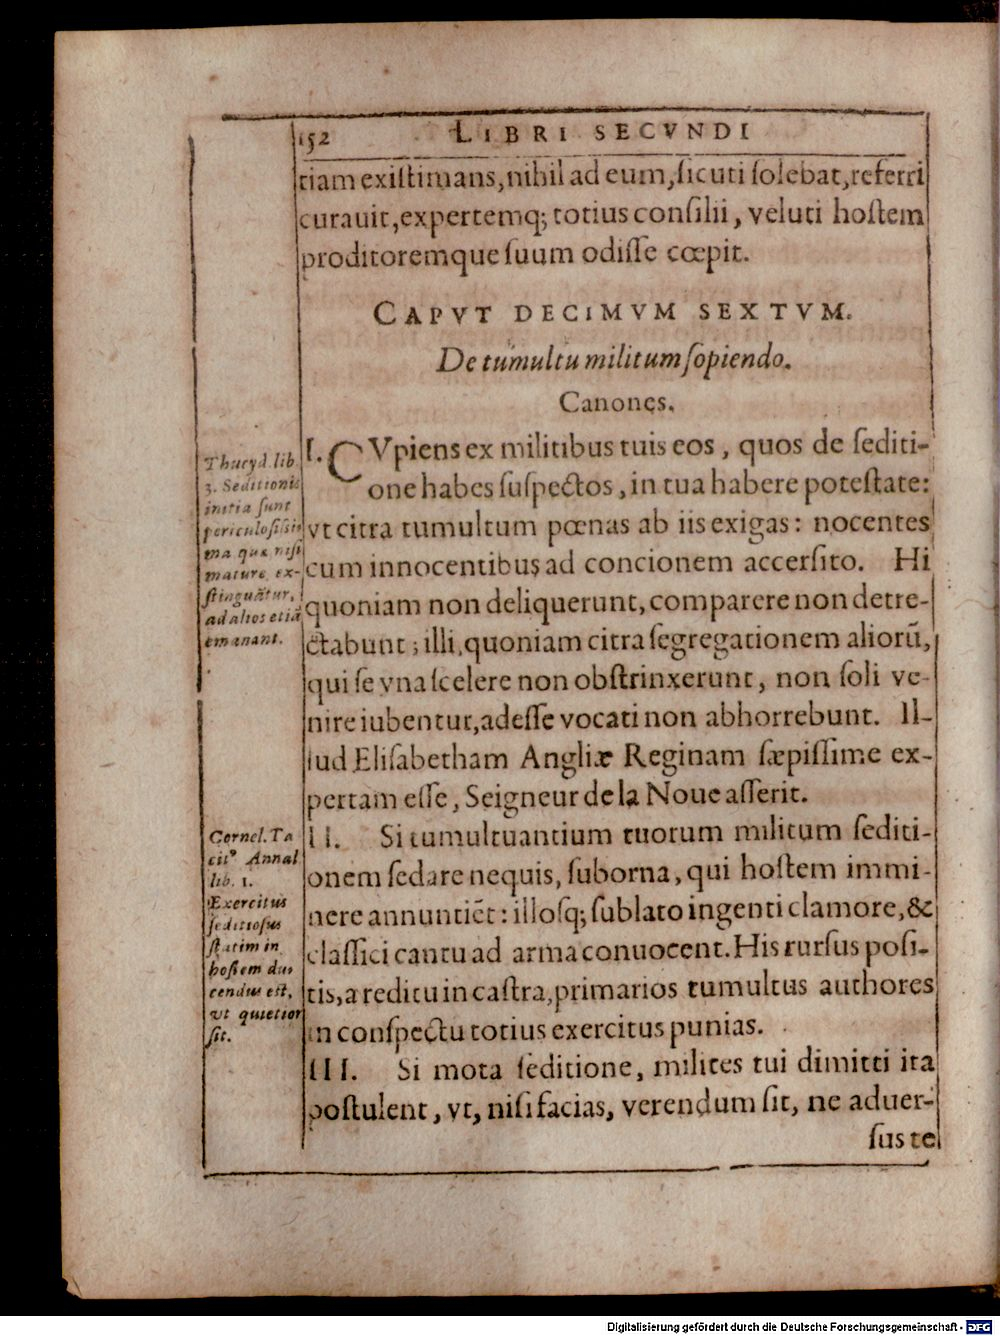 152 LIBRI SECVNDI
tiam exiſtimans, nihil ad eum, ſicuti ſolebat, referri
curauit, expertemq; totius conſilii, veluti hoſtem
proditoremque ſuum odiſſe cœpit.
CAPVT DECIMVM SEXTVM.
De tumultu militum ſopiendo.
Canones.
I. CVpiens ex militibus tuis eos, quos de ſediti-
one habes ſuſpectos, in tua habere poteſtate:
vt citra tumultum pœnas ab iis exigas: nocentes
cum innocentibus ad concionem accerſito. Hi
quoniam non deliquerunt, comparere non detre-
ctabunt; illi, quoniam citra ſegregationem aliorū,
qui ſe vna ſcelere non obſtrinxerunt, non ſoli ve-
nire iubentur, adeſſe vocati non abhorrebunt. Il-
lud Eliſabetham Angliæ Reginam ſæpiſſime ex-
pertam eſſe, Seigneur de la Noue aſſerit.
II. Si tumultuantium tuorum militum ſediti-
onem ſedare nequis, ſuborna, qui hoſtem immi-
nere annuntiēt: illoſq; ſublato ingenti clamore, &
claſſici cantu ad arma conuocent. His rurſus poſi-
tis, a reditu in caſtra, primarios tumultus authores
in conſpectu totius exercitus punias.
III. Si mota ſeditione, milites tui dimitti ita
poſtulent, vt, niſi facias, verendum ſit, ne aduer-
ſus te
Thucyd. lib.
3. Seditionis
initia ſunt
periculoſiſſi
ma quæ niſi
mature, ex-
ſtinguātur,
ad alios etiā
emanant.
Cornel. Ta
cit⁹ Annal
lib. 1.
Exercitus
ſeditioſus
ſtatim in
hoſtem du-
cendus eſt,
vt quietior
ſit.
Digitalisierung gefördert durch die Deutsche Forschungsgemeinschaft - DFG